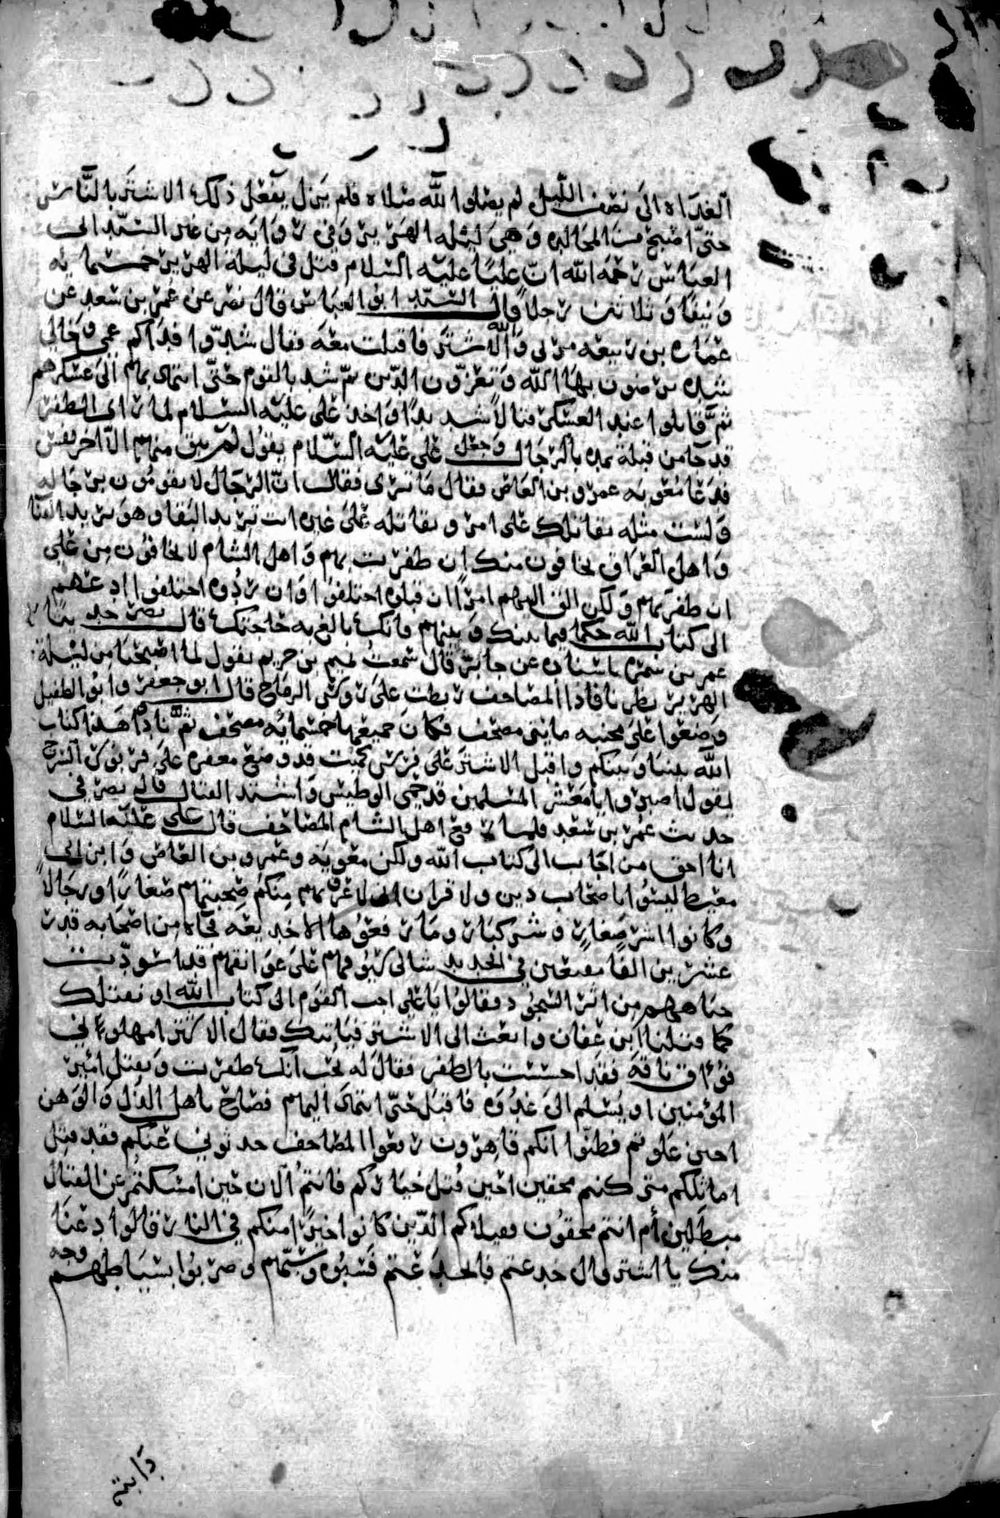 الغداة الى نصف الليل لم يصلوا لله صلاه فلم يزل يفعل ذلك الاشتر بالناس
حتى اصبح من المجالده وهي ليلة الهرير وفي روايه من غير السيد ابى
العباس رحمه الله ان عليا عليه السلام قتل في ليلة الهرير خمسمايه
ونيفا وثلاثين رجلا قال السيد ابو العباس قال نصر عن عمر بن سعد عن
عماره بن ربيعه مر بي والله الاشتر فاقبلت معه فقال شدوا فداكم عمي وخالي
شده ترضون بها الله وتعزون الدين ثم شد بالقوم حتى انتهى بهم الى عسكرهم
ثم قاتلوا عند العسكر قتالا شديدا واخذ علي عليه السلام لما راى الظفر
قد جا من قبله يمده بالرجال وجعل علي عليه السلام يقول لم يبق منهم الا اخر نفس
فدعا معويه عمرو بن العاص فقال ما ترى فقال ان الرجال لا يقومون برجاله
ولست مثله يقاتلك على امر وتقاتله على غيره انت تريد البقا وهو يريد الفنا
واهل العراق يخافون منك ان ظفرت بهم واهل الشام لا يخافون من علي
ان ظفر بهم ولكن الق اليهم امرا ان قبلوه اختلفوا وان ردوه اختلفوا ادعهم
الى كتاب الله حكما فيما بينك وبينهم فانك بالغ به حاجتك قال نصر حدثنا
عمر بن شمر باسناده عن جابر قال سمعت تميم بن حريم يقول لما اصبحنا من ليلة
الهرير نظرنا فاذا المصاحف ربطت على روس الرماح قال ابو جعفر وابو الطفيل
وضعوا على مجنبه مايتي مصحف فكان جميعها خمسمايه مصحف ثم نادوا هذا كتاب
الله بيننا وبينكم واقبل الاشتر على فرس كميت قد وضع مغفره على قربوس السرج
يقول اصبروا يا معشر المسلمين قد حمي الوطيس واشتد القتال قال نصر في
حديث عمر بن سعد فلما رفع اهل الشام المصاحف قال علي عليه السلام
انا احق من اجاب الى كتاب الله ولكن معويه وعمرو بن العاص وابن ابي
معيط ليسوا باصحاب دين ولا قران اني لاعرف بهم منكم صحبتهم صغارا ورجالا
وكانوا اشر صغار وشر كبار وما رفعوها الا خديعه فجاه من اصحابه قدر
عشرين الفا مقنعين في الحديد شاكي سيوفهم على عواتقهم قد اسودت
جباههم من اثر السجود فقالوا يا علي اجب القوم الى كتاب الله او نقتلك
كما قتلنا ابن عفان وابعث الى الاشتر فياتيك فقال الاشتر امهلوني
فواق ناقه فقد احسست بالظفر فقال له تحب انك ظفرت ويقتل امير
المؤمنين او يسلم الى عدوه فاقبل حتى انتهى اليهم فصاح يا اهل الذل والوهن
احين علوتم فظنوا انكم قاهرون رفعوا المصاحف حدثوني عنكم فقد قتل
اماثلكم متى كنتم محقين احين قتل خياركم فانتم الان حين امسكتم عن القتال
مبطلين أم انتم محقون فقتلاكم الذين كانوا خيرا منكم في النار قالوا دعنا
منك يا اشتر قال خدعتم فانخدعتم فسبوه وسبهم وضربوا بسياطهم وجه
دابته